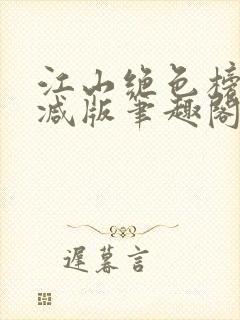 江山绝色榜
减版笔趣阁
遲暮言